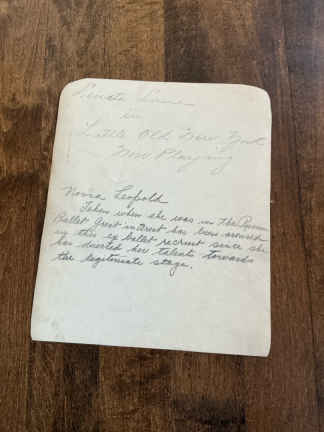 in
Little Old New York
Now Playing
Leopold
Taken when she was in the
Ballet. Great interest has been aroused
in this ex ballet recruit since she
has diverted her talents towards
the legitimate stage.